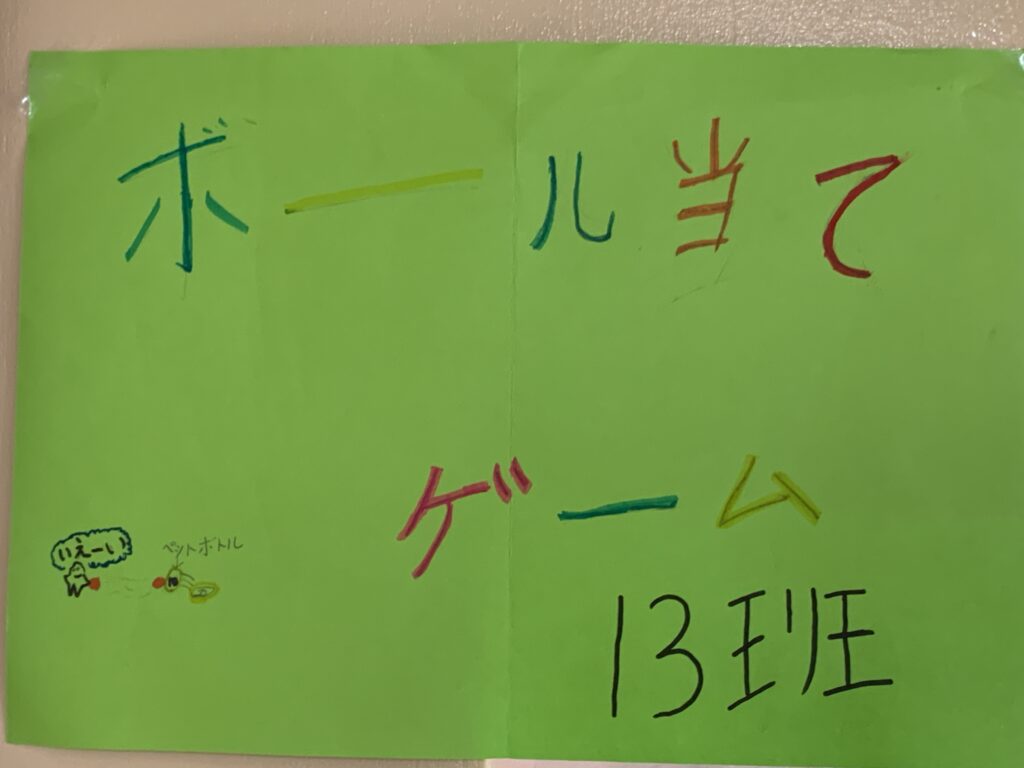 ボール当て
ゲーム
いえーい
ペットボトル
13班